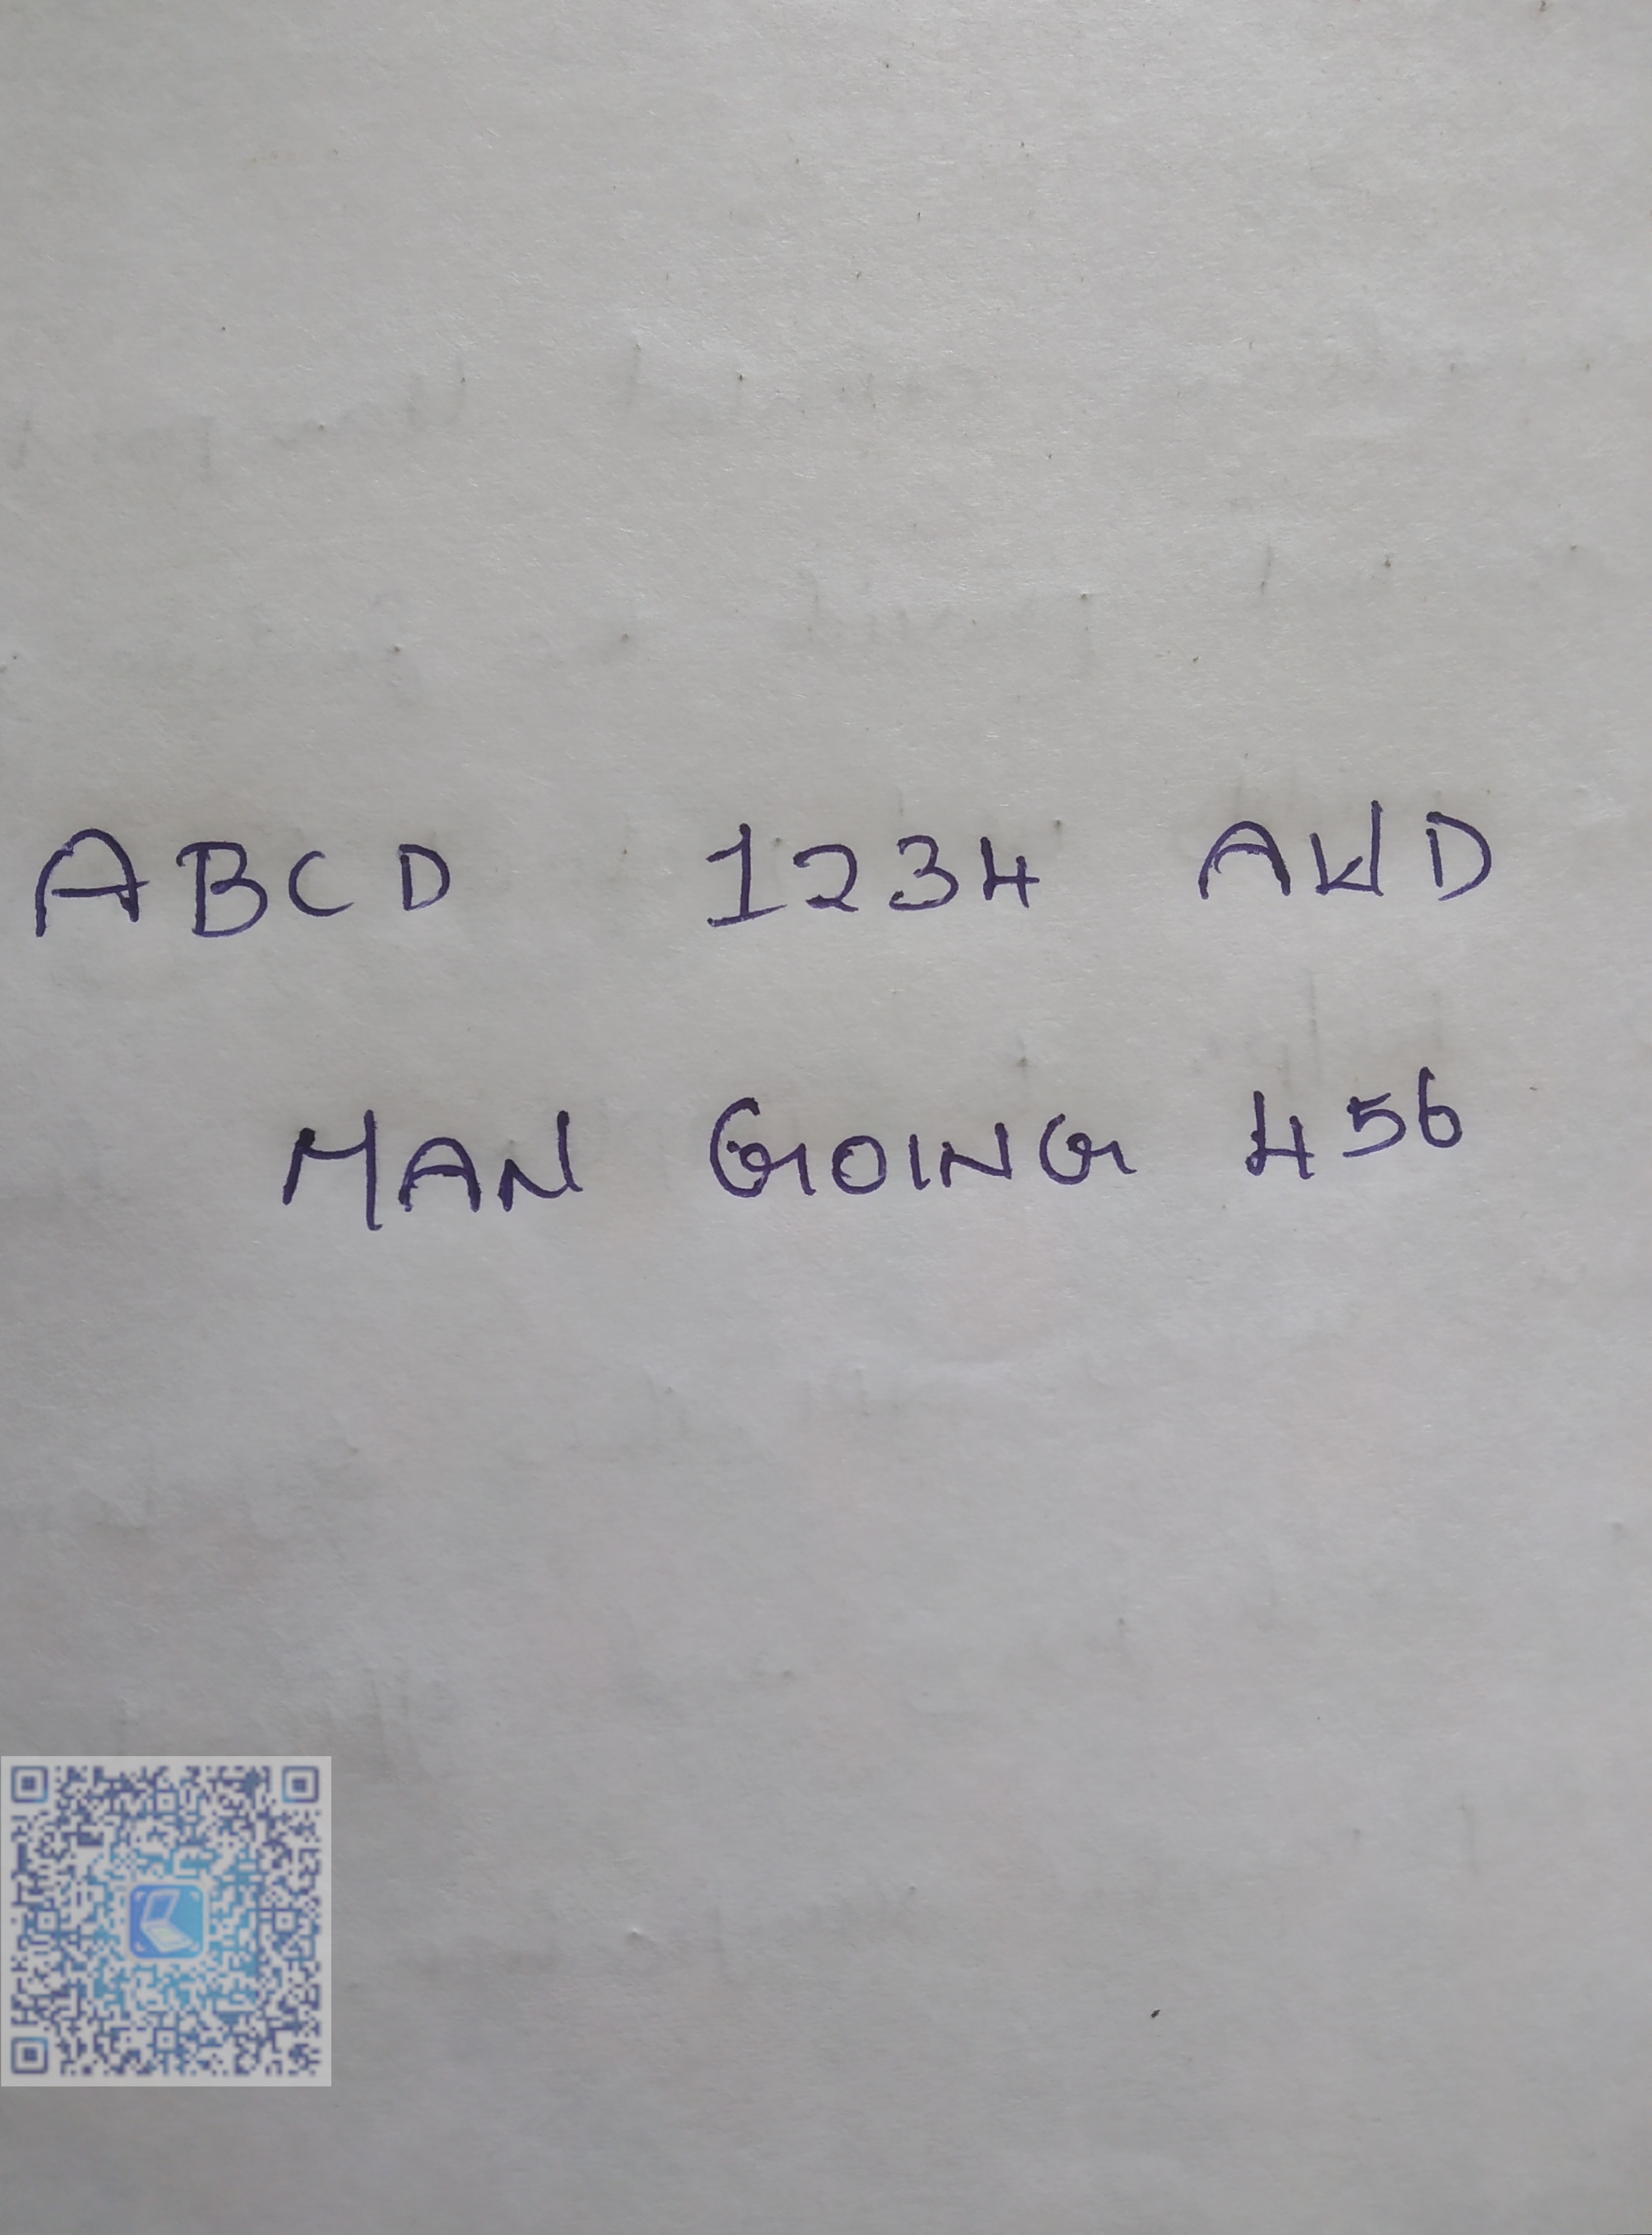 ABCD 1234 AWD
MAN GOING 456